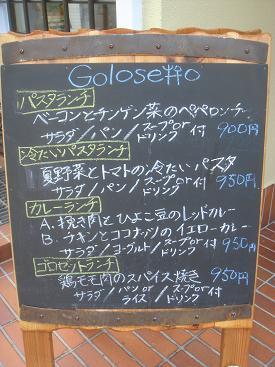 Golosetto
パスタランチ
ベーコンとチンゲン菜のペペロンチーノ
サラダ/パン/スープorドリンク付 900円
冷たいパスタランチ
夏野菜とトマトの冷たいパスタ
サラダ/パン/スープorドリンク付 950円
カレーランチ
A. 挽き肉とひよこ豆のレッドカレー
B. チキンとココナッツのイエローカレー
サラダ/ヨーグルト/スープorドリンク付 950円
ゴロセットランチ
鶏モモ肉のスパイス焼き 950円
サラダ/パンorライス/スープorドリンク付